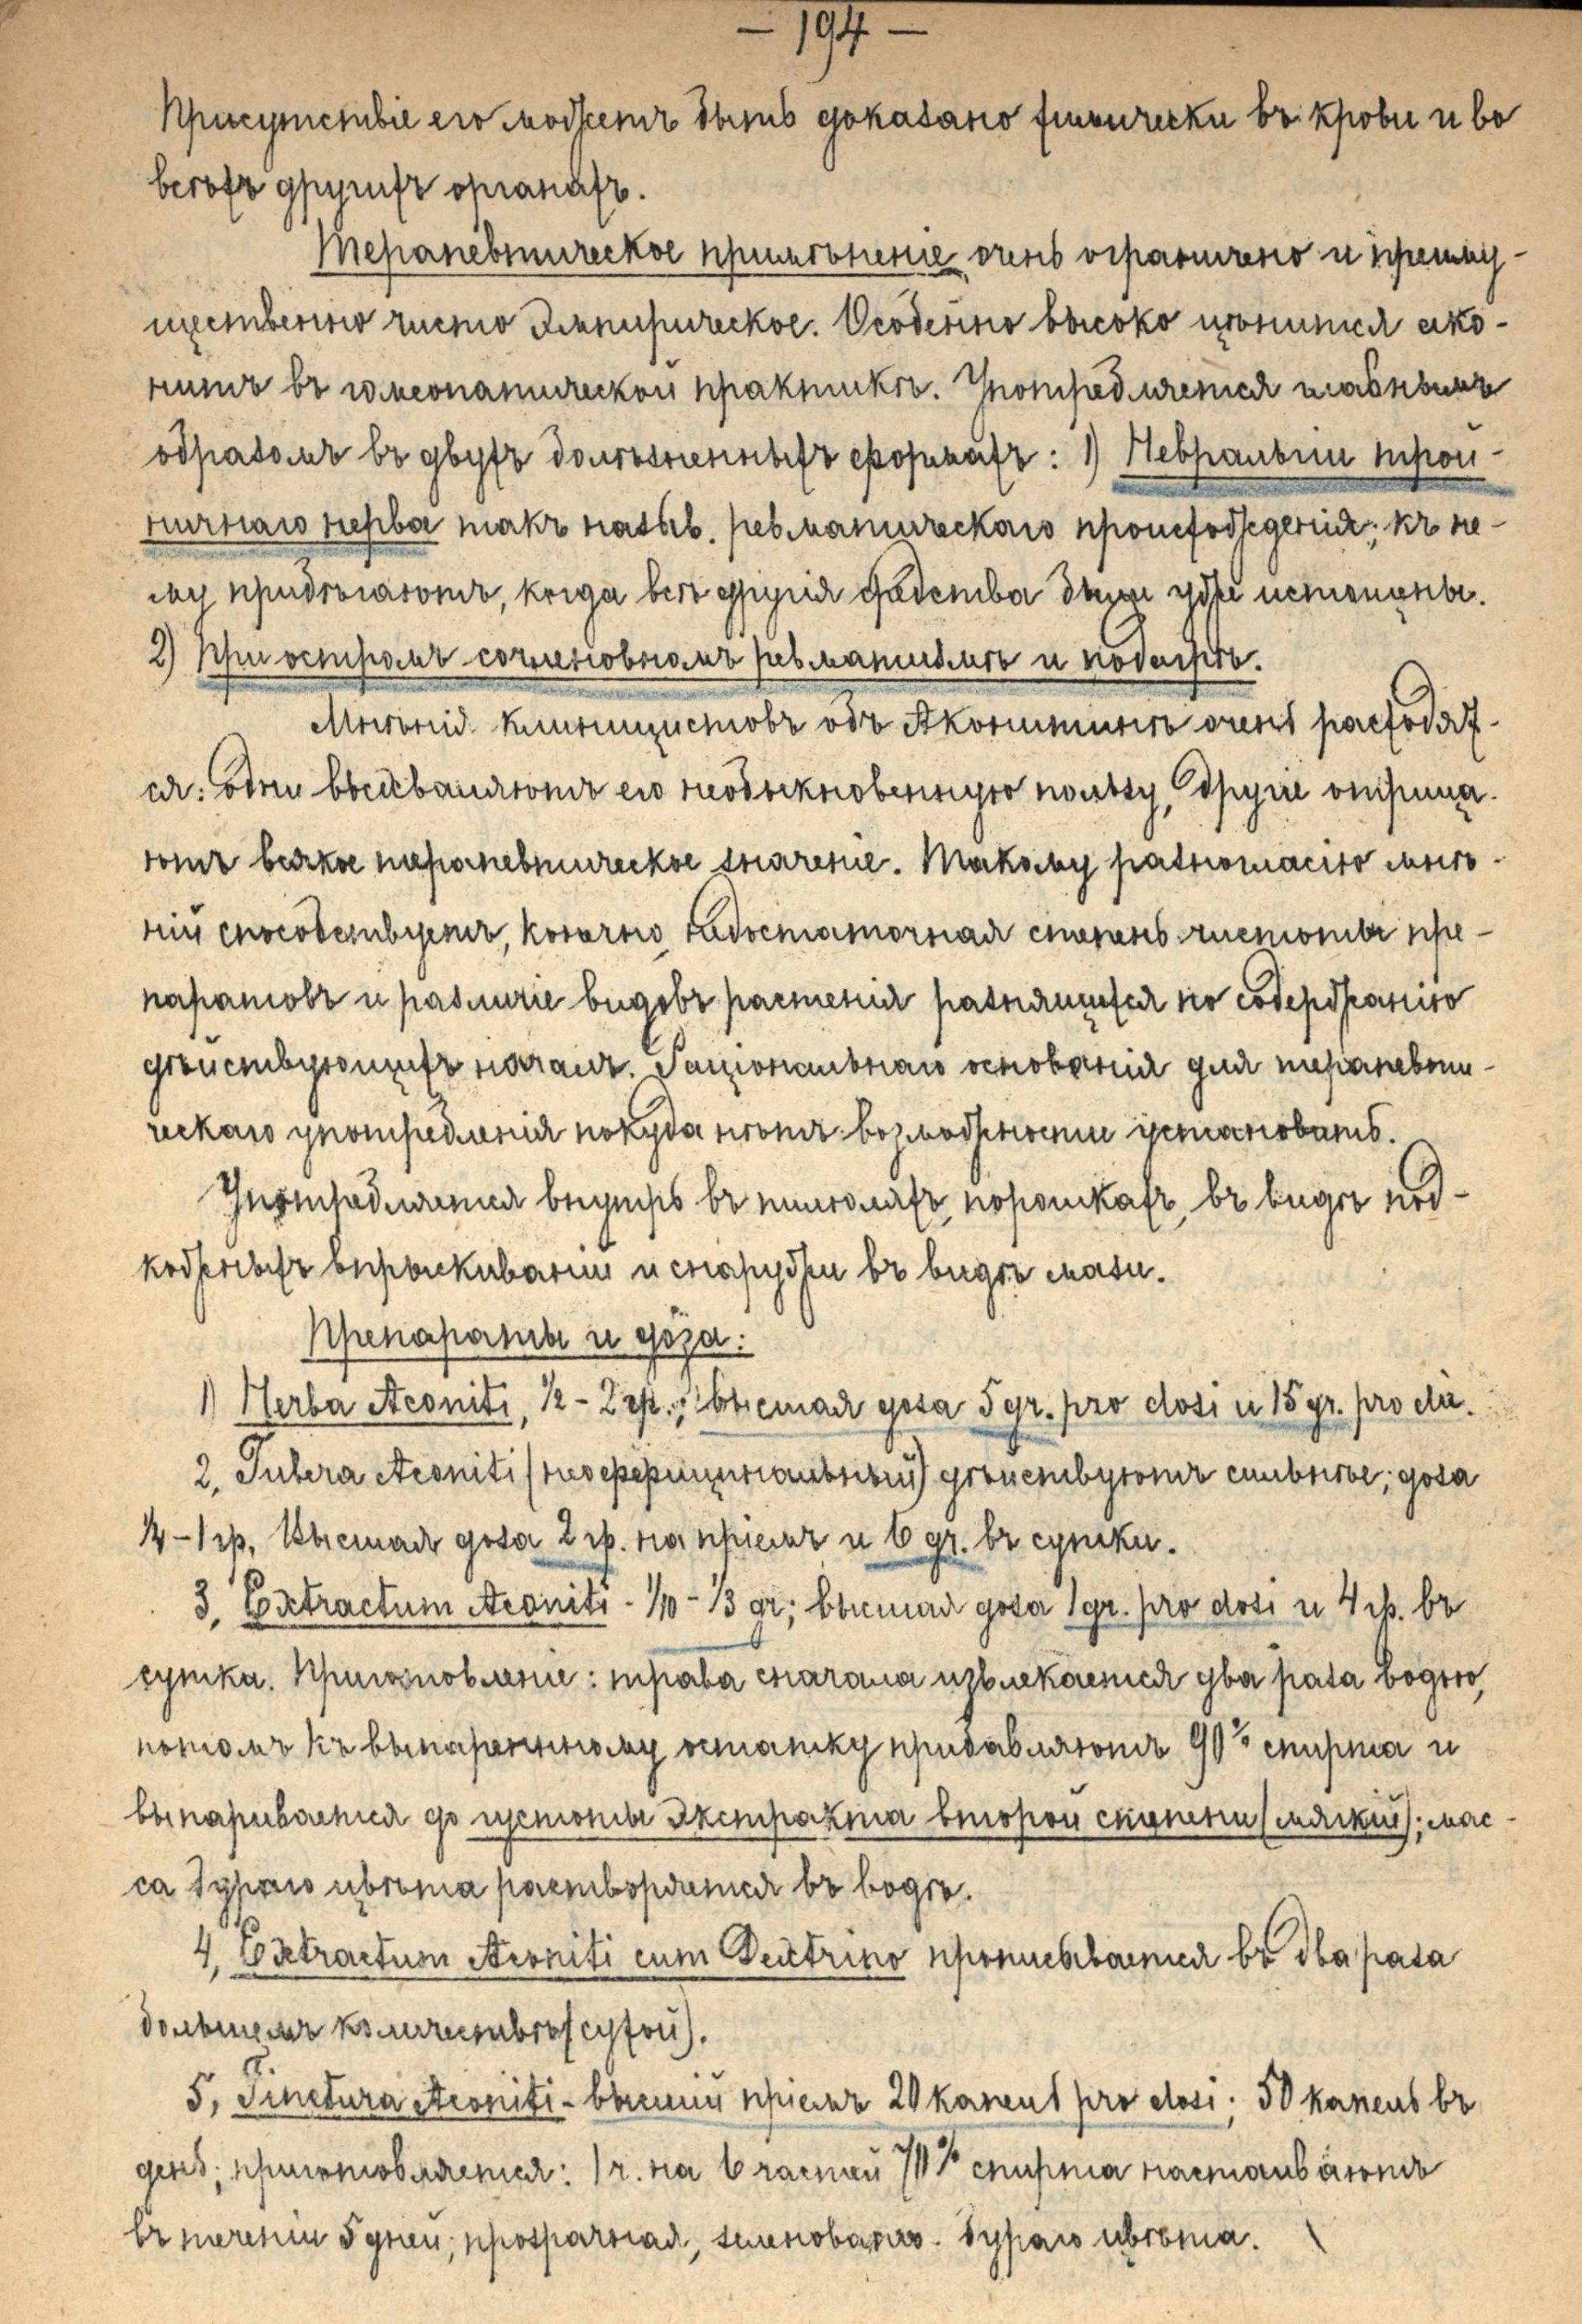 — 194 —
Присутствіе его можетъ быть доказано химически въ крови и во
всѣхъ другихъ органахъ.
Терапевтическое примѣненіе очень ограничено и преиму-
щественно чисто эмпирическое. Особенно высоко цѣнится ако-
нитъ въ гомеопатической практикѣ. Употребляется главнымъ
образомъ въ двухъ болѣзненныхъ формахъ: 1) Невралгіи трой-
ничнаго нерва такъ назыв. ревматическаго происхожденія; къ не-
му прибѣгаютъ, когда всѣ другія средства были уже истощены.
2) при остромъ сочленовномъ ревматизмѣ и подагрѣ.
Мнѣнія клиницистовъ объ Аконитинѣ очень расходят-
ся: одни высхваляютъ его необыкновенную пользу, другіе отрица-
ютъ всякое терапевтическое значеніе. Такому разногласію мнѣ-
ній способствуетъ, конечно, недостаточная степень чистоты пре-
паратовъ и различіе видовъ растенія разнящихся по содержанію
дѣйствующихъ началъ. Раціональнаго основанія для терапевти-
ческаго употребленія покуда нѣтъ возможности установить.
Употребляется внутрь въ пилюляхъ, порошкахъ, въ видѣ под-
кожныхъ впрыскиваній и снаружи въ видѣ мази.
Препараты и доза:
1) Herba Aconiti, ½ – 2 гр.; высшая доза 5 gr. pro dosi и 15 gr. pro die.
2, Tubera Aconiti (неофферицинальный) дѣйствуютъ сильнѣе; доза
¼ – 1 гр. Высшая доза 2 гр. на пріемъ и 6 gr. въ сутки.
3, Extractum Aconiti - 1/10 - 1/3 gr; высшая доза 1 gr. pro dosi и 4 гр. въ
сутка. Приготовленіе: трава сначала извлекается два раза водою,
потомъ къ выпаренному остатку прибавляютъ 90% спирта и
выпаривается до густоты экстракта второй степени (мягкій); мас-
са бураго цвѣта растворяется въ водѣ.
4, Extractum Aconiti cum Dextrino прописывается въ два раза
большемъ количествѣ (сухой).
5, Tinctura Aconiti - высшій пріемъ 20 капель pro dosi; 50 капель въ
день; приготовляется: 1 ч. на 6 частей 70% спирта настаиваютъ
въ теченіи 5 дней; прозрачная, зеленовато-бураго цвѣта.